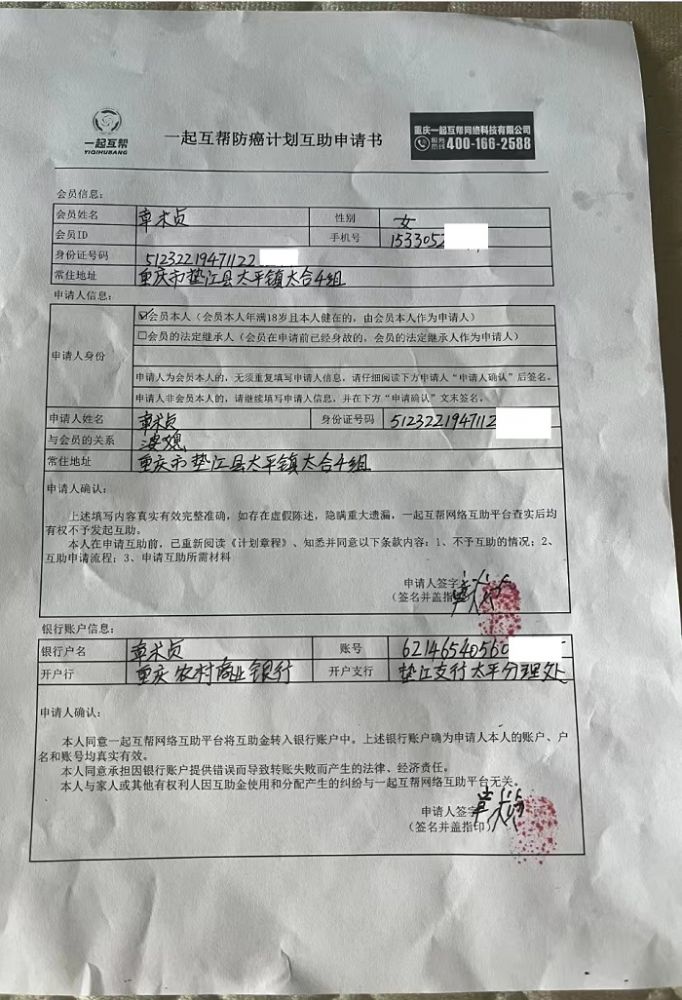 一起互帮
YIQIHUBANG
一起互帮防癌计划互助申请书
重庆一起互帮网络科技有限公司
服务热线 400-166-2588
会员信息：
会员姓名 章术贞 性别 女
会员ID 手机号 153305
身份证号码 51232219471122
常住地址 重庆市垫江县太平镇太合4组
申请人信息：
申请人身份
☑会员本人（会员本人年满18岁且本人健在的，由会员本人作为申请人）
☐会员的法定继承人（会员在申请前已经身故的，会员的法定继承人作为申请人）
申请人为会员本人的，无须重复填写申请人信息，请仔细阅读下方申请人“申请人确认”后签名。
申请人非会员本人的，请继续填写申请人信息，并在下方“申请确认”文末签名。
申请人姓名 章术贞 身份证号码 5123221947112
与会员的关系
常住地址 重庆市垫江县太平镇太合4组
申请人确认：
上述填写内容真实有效完整准确，如存在虚假陈述，隐瞒重大遗漏，一起互帮网络互助平台查实后均
有权不予发起互助。
本人在申请互助前，已重新阅读《计划章程》、知悉并同意以下条款内容：1、不予互助的情况；2、
互助申请流程；3、申请互助所需材料
申请人签字：
（签名并盖指印）
银行账户信息：
银行户名 章术贞 账号 62146540560
开户行 重庆农村商业银行 开户支行 垫江支行太平分理处
申请人确认：
本人同意一起互帮网络互助平台将互助金转入银行账户中。上述银行账户确为申请人本人的账户、户
名和账号均真实有效。
本人同意承担因银行账户提供错误而导致转账失败而产生的法律、经济责任。
本人与家人或其他有权利人因互助金使用和分配产生的纠纷与一起互帮网络互助平台无关。
申请人签字
（签名并盖指印）